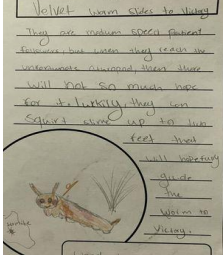 Velvet Worm Slides to Victory
They are medium speed patient
but when they reach the
then there
will not so much hope
for it. luckily, they can
Squirt slime up to two
feet that
will hopefully
guide
the
worm to
Victory.